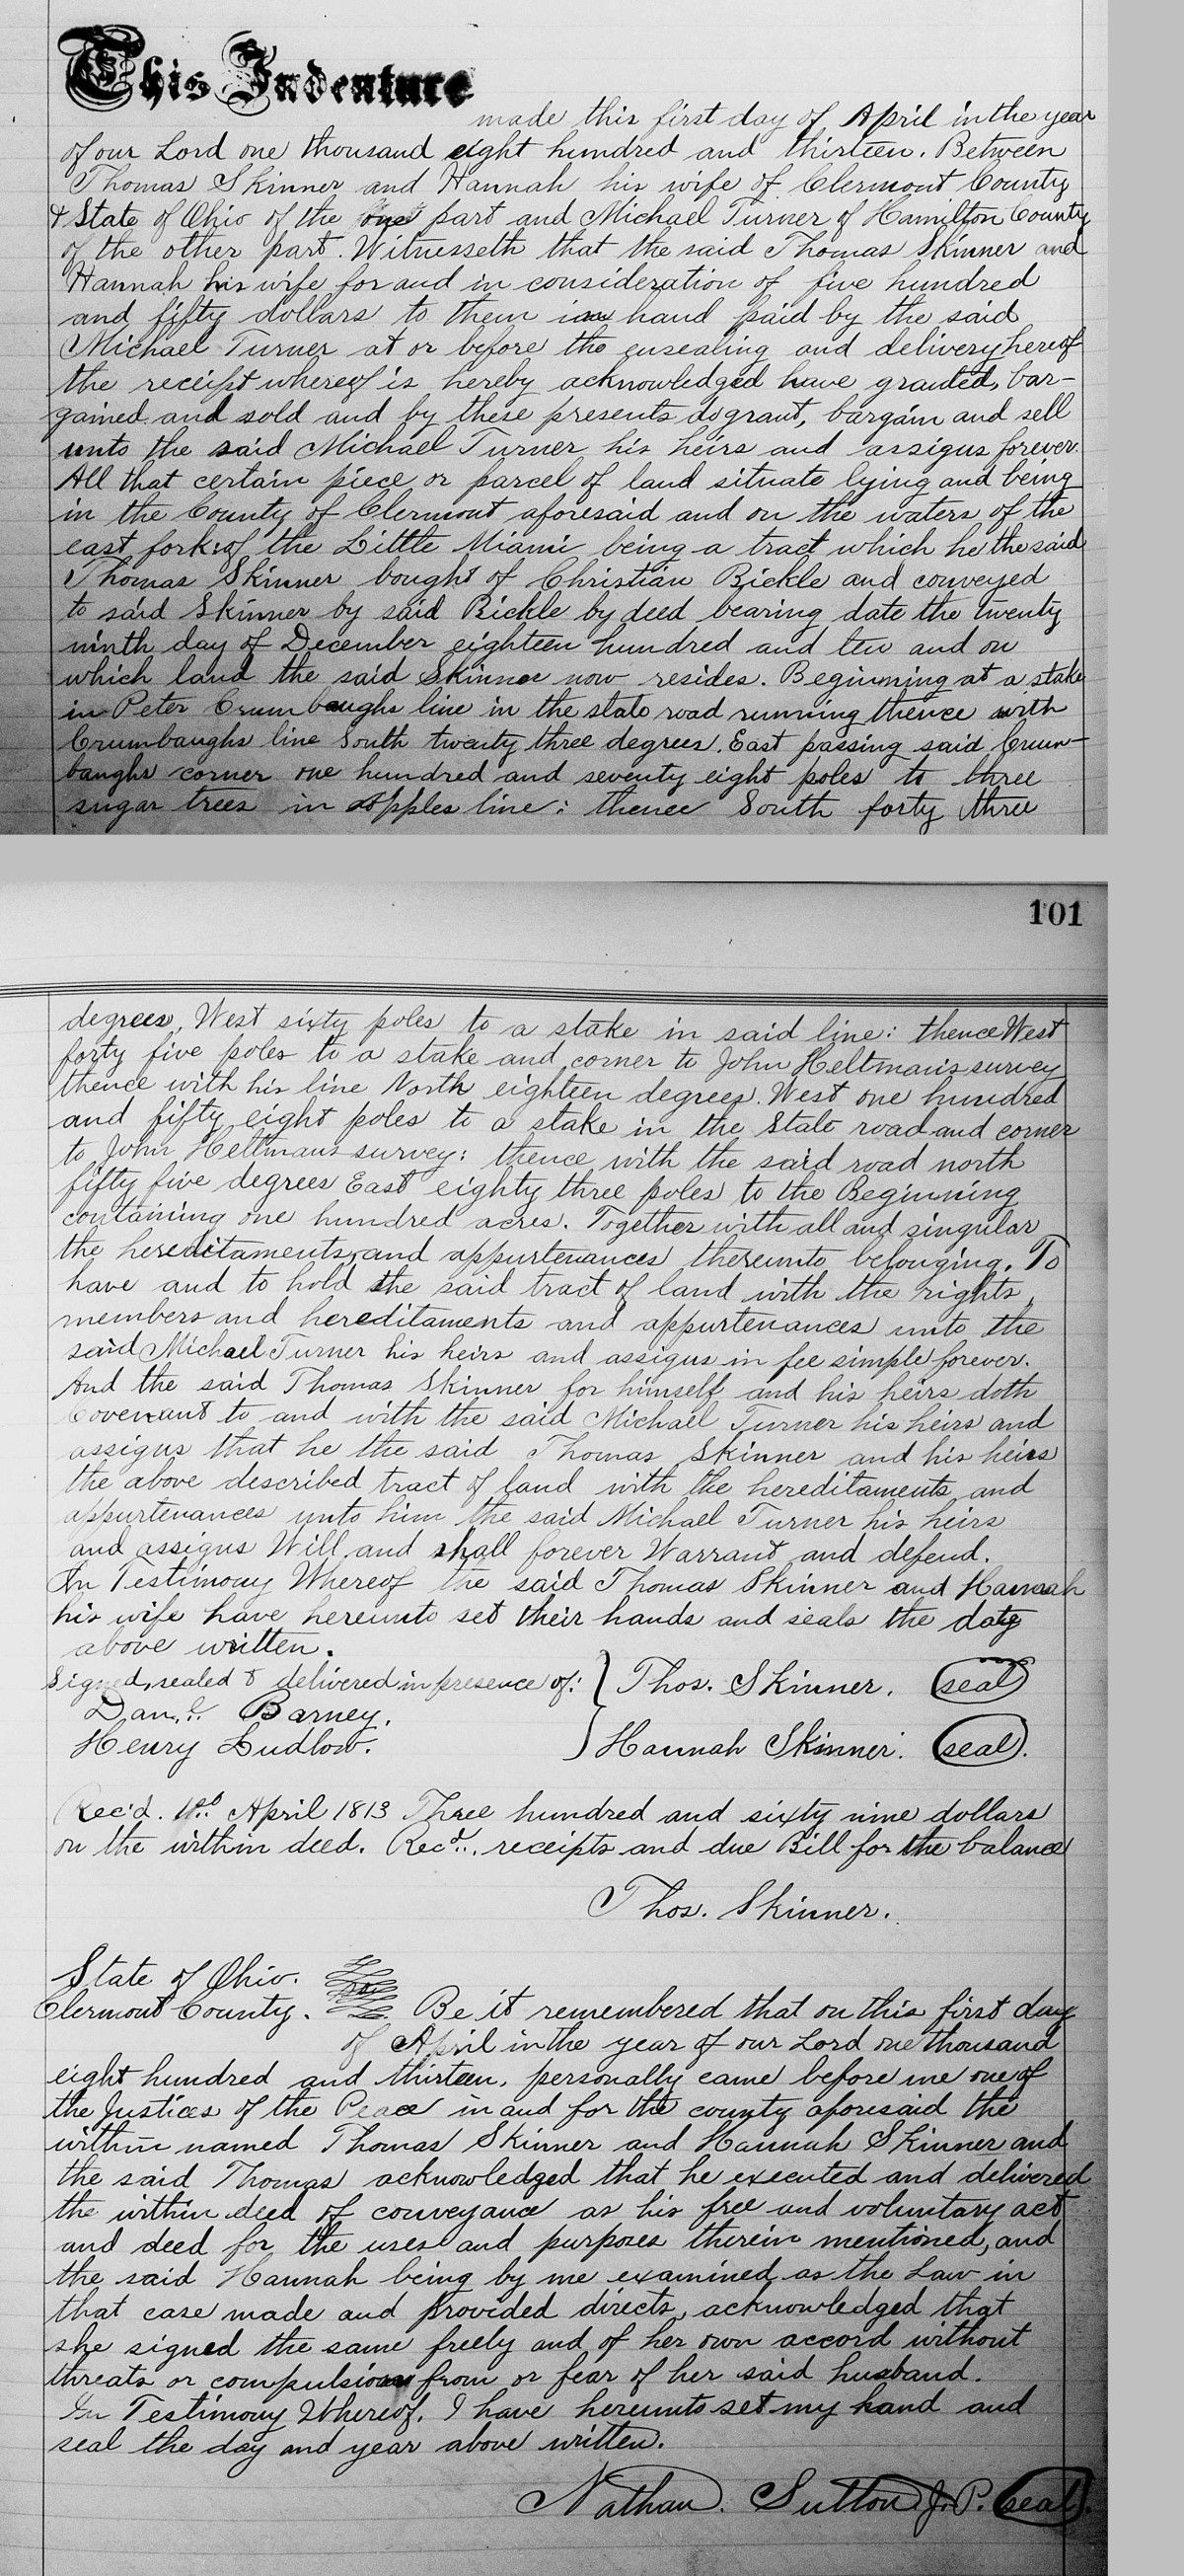 This Indenture
made this first day of April in the year
of our Lord one thousand eight hundred and thirteen. Between
Thomas Skinner and Hannah his wife of Clermont County
& State of Ohio of the one part and Michael Turner of Hamilton County
of the other part. Witnesseth that the said Thomas Skinner and
Hannah his wife for and in consideration of five hundred
and fifty dollars to them in hand paid by the said
Michael Turner at or before the ensealing and delivery hereof
the receipt whereof is hereby acknowledged have granted, bar-
gained and sold and by these presents do grant, bargain and sell
unto the said Michael Turner his heirs and assigns forever.
All that certain piece or parcel of land situate lying and being
in the County of Clermont aforesaid and on the waters of the
east fork of the Little Miami being a tract which he the said
Thomas Skinner bought of Christian Bickle and conveyed
to said Skinner by said Bickle by deed bearing date the twenty
ninth day of December eighteen hundred and ten and on
which land the said Skinner now resides. Beginning at a stake
in Peter Crumbaughs line in the state road running thence with
Crumbaughs line South twenty three degrees. East passing said Crum-
baughs corner one hundred and seventy eight poles to three
sugar trees in line: thence South forty three
101
degrees, West sixty poles to a stake in said line: thence West
forty five poles to a stake and corner to John Heltman's survey
thence with his line North eighteen degrees. West one hundred
and fifty eight poles to a stake in the State road and corner
to John Heltmans survey: thence with the said road north
fifty five degrees East eighty three poles to the Beginning
containing one hundred acres. Together with all and singular
the hereditaments and appurtenances thereunto belonging. To
have and to hold the said tract of land with the rights,
members and hereditaments and appurtenances unto the
said Michael Turner his heirs and assigns in fee simple forever.
And the said Thomas Skinner for himself and his heirs doth
Covenant to and with the said Michael Turner his heirs and
assigns that he the said Thomas Skinner and his heirs
the above described tract of land with the hereditaments and
appurtenances unto him the said Michael Turner his heirs
and assigns Will and shall forever Warrant and defend.
In Testimony Whereof the said Thomas Skinner and Hannah
his wife have hereunto set their hands and seals the date
above written.
Signed, sealed & delivered in presence of: } Thos. Skinner. (seal)
Dan.l Barney.
Henry Ludlow. } Hannah Skinner. (seal).
Rec'd. April 1813 Three hundred and sixty nine dollars
on the within deed. Recd. receipts and due Bill for the balance
Thos. Skinner.
State of Ohio.
Clermont County. Be it remembered that on this first day
of April in the year of our Lord one thousand
eight hundred and thirteen, personally came before me one of
the Justices of the Peace in and for the county aforesaid the
within named Thomas Skinner and Hannah Skinner and
the said Thomas acknowledged that he executed and delivered
the within deed of conveyance as his free and voluntary act
and deed for the uses and purposes therein mentioned, and
the said Hannah being by me examined as the Law in
that case made and provided directs, acknowledged that
she signed the same freely and of her own accord without
threats or compulsion from or fear of her said husband.
In Testimony Whereof. I have hereunto set my hand and
seal the day and year above written.
Nathan. Sutton J. P. (seal).